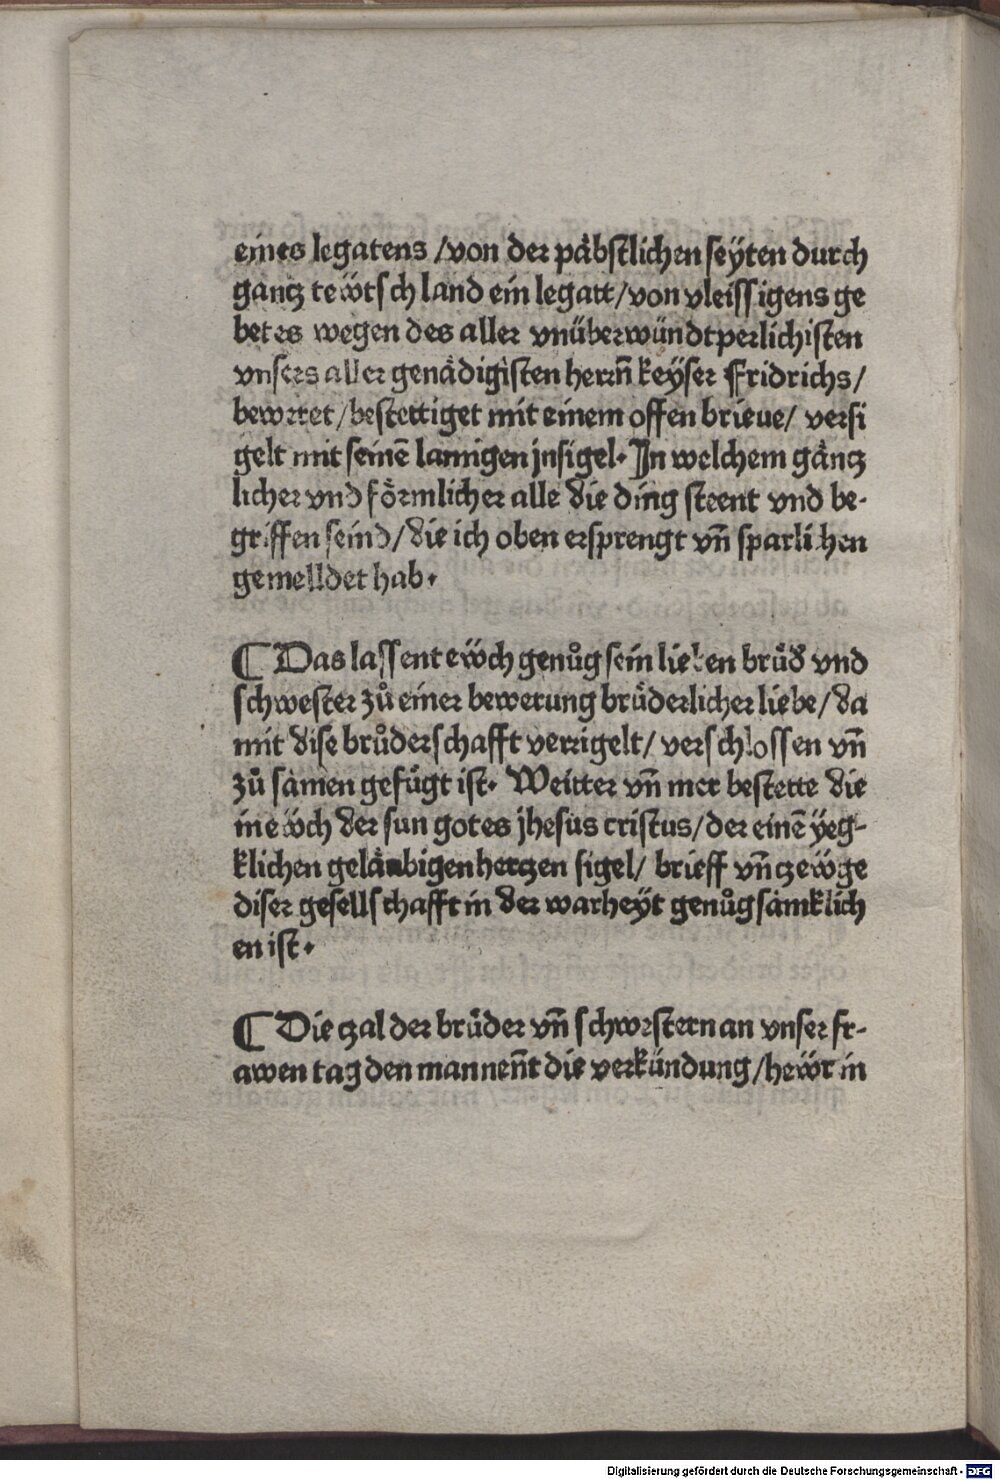 eines legatens /von der päbstlichen seÿten durch
gantz teẅtsch land ein legatt/von vleissigens ge
betes wegen des aller vnüberwündtperlichisten
vnsers aller genädigisten herrn̄ keÿser Fridrichs/
bewrret/bestettiget mit einem offen brieue/ versi
gelt mit seinē lannigen jnsigel. In welchem gäntz
licher vnd förmlicher alle die ding steent vnd be-
griffen seind/die ich oben ersprengt vn̄ sparlichen
gemelldet hab.
¶ Das lassent eẅch genůg sein lieben brüd vnd
schwester zů einer bewerung brüderlicher liebe/da
mit dise brůderschafft verrigelt/ verschlossen vn̄
zů samen gefügt ist. Weitter vn̄ mer bestette die
in eẅch der sun gotes jhesus cristus/der einē yeg-
klichen geläubigen hertzen sigel/ brieff vn̄ tzeẅge
diser gesellschafft in der warheÿt genůgsamklich
en ist.
¶ Die tzal der brüder vn̄ schwestern an vnser fr-
awen tag den man nen̄t die verkündung/heẅr in
Digitalisierung gefördert durch die Deutsche Forschungsgemeinschaft - DFG